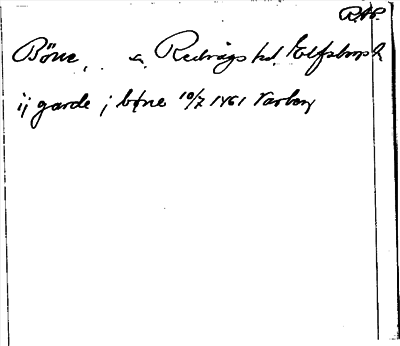 R.A.P.
Böne, s. Redvägs hd, Elfsborgs l
ij garde j bøne 10/7 1461 Varberg